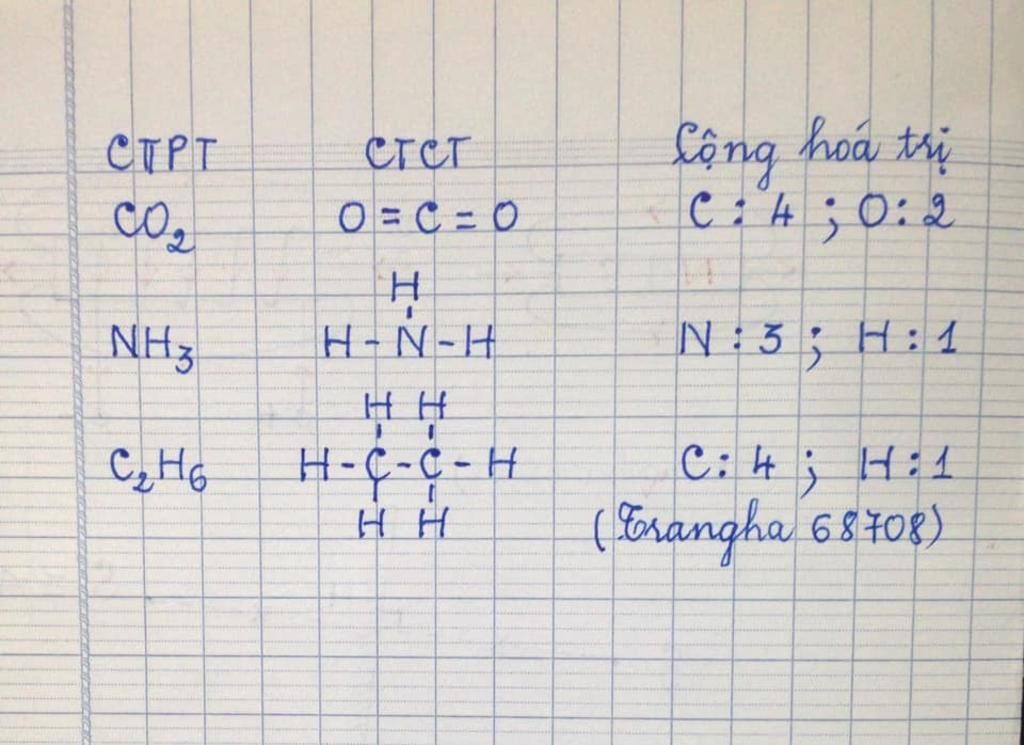 CTPT CTCT Cộng hoá trị
CO₂ O = C = O C : 4 ; O : 2
H
NH₃ H - N - H N : 3 ; H : 1
H H
C₂H₆ H - C - C - H C : 4 ; H : 1
H H (Trangha 68708)